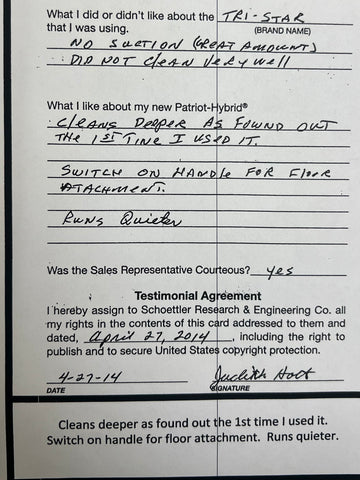 What I did or didn't like about the TRI-STAR
that I was using. (BRAND NAME)
NO SUCTION (GREAT AMOUNT)
DID NOT CLEAN VERY WELL
What I like about my new Patriot-Hybrid®
CLEANS DEEPER AS FOUND OUT
THE 1ST TIME I USED IT.
SWITCH ON HANDLE FOR FLOOR
ATACHMENT.
RUNS QUIETER
Was the Sales Representative Courteous? yes
Testimonial Agreement
I hereby assign to Schoettler Research & Engineering Co. all
my rights in the contents of this card addressed to them and
dated, April 27, 2014, including the right to
publish and to secure United States copyright protection.
4-27-14 Judith Holt
DATE SIGNATURE
Cleans deeper as found out the 1st time I used it.
Switch on handle for floor attachment. Runs quieter.